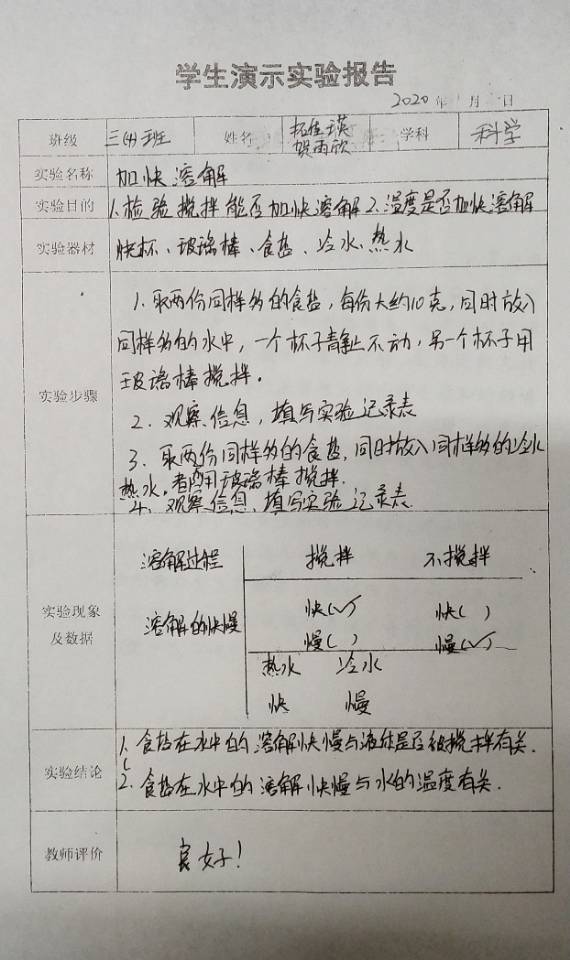 学生演示实验报告
2020 年 月 日
班级 三(4)班 姓名 拓佳瑛 学科 科学
贺雨欣
实验名称 加快溶解
实验目的 1.检验搅拌能否加快溶解 2.温度是否加快溶解
实验器材 烧杯、玻璃棒、食盐、冷水、热水
1.取两份同样多的食盐,每份大约10克,同时放入
同样多的水中,一个杯子静止不动,另一个杯子用
实验步骤 玻璃棒搅拌.
2.观察信息,填写实验记录表
3.取两份同样多的食盐,同时放入同样多的冷水
热水,都用玻璃棒搅拌.
4.观察信息.填写实验记录表.
溶解过程 搅拌 不搅拌
实验现象及数据 溶解的快慢 快(√) 快( )
慢( ) 慢(√)
热水 冷水
快 慢
实验结论 1.食盐在水中的溶解快慢与液体是否被搅拌有关.
2.食盐在水中的溶解快慢与水的温度有关.
教师评价 良好!